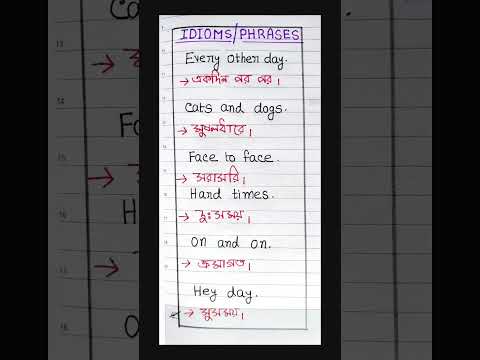 IDIOMS/PHRASES
Every other day.
→ একদিন পর পর।
Cats and dogs.
→ মুষলধারে।
Face to face.
→ সরাসরি।
Hard times.
→ দুঃসময়।
On and on.
→ ক্রমাগত।
Hey day.
→ সুসময়।